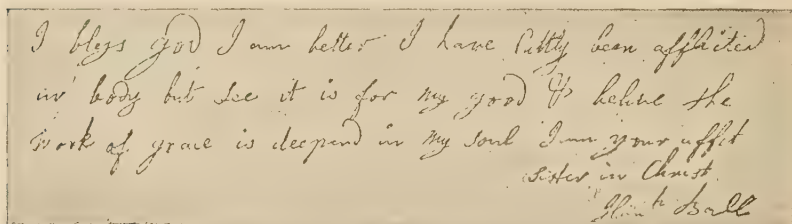 I bless God I am better I have lattly been afflicted
in body but see it is for my good & beleve the
work of grace is deepend in my soul I am your affct
sister in Christ
Ball